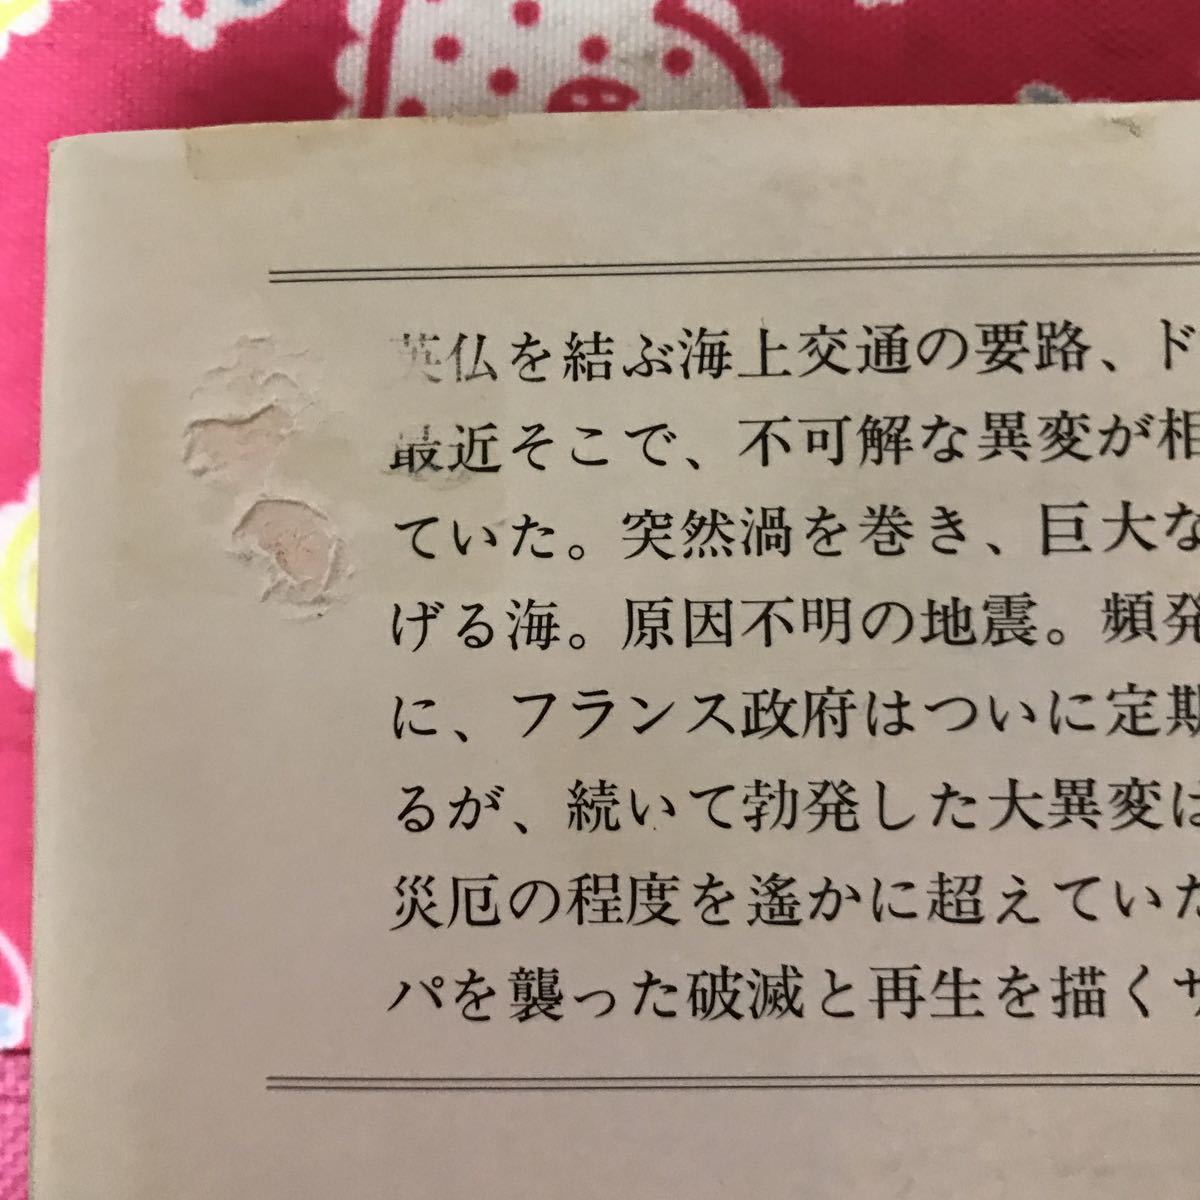 英仏を結ぶ海上交通の要路、ド
最近そこで、不可解な異変が相
ていた。突然渦を巻き、巨大な
げる海。原因不明の地震。頻発
に、フランス政府はついに定期
るが、続いて勃発した大異変は
災厄の程度を遙かに超えていた
パを襲った破滅と再生を描くサ